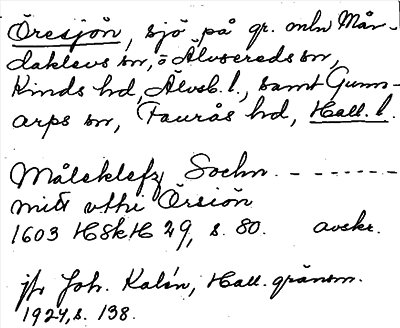 Öresjön, sjö på gr. mln Mår-
daklevs sn, o Älvsereds sn,
Kinds hd, Älvsb. l., samt Gunn-
arps sn, Faurås hd, Hall. l.
Målcklefz Sochn. - - - - - - -
mitt vthi Örsiön
1603 H8kH 29, s. 80. avskr.
jfr Joh. Kalén, Hall. gränsm.
1924, s. 138.